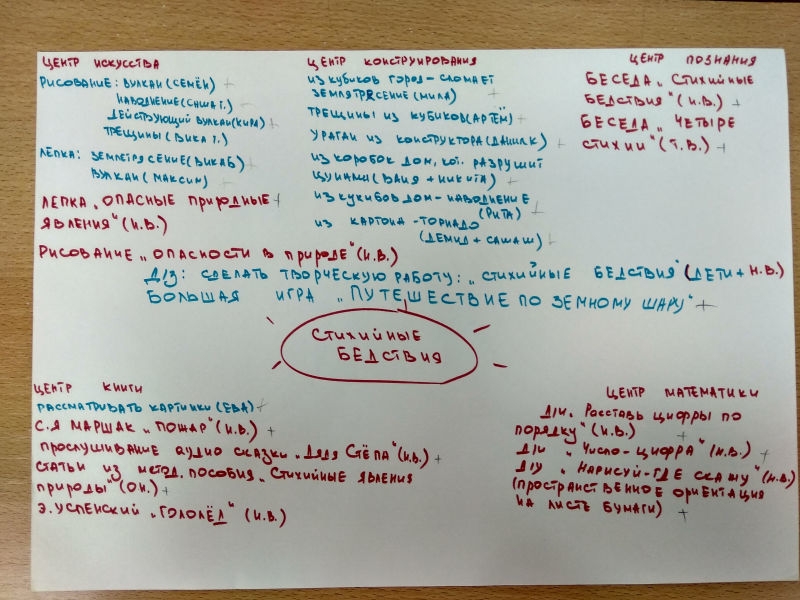 ЦЕНТР ИСКУССТВА
РИСОВАНИЕ: ВУЛКАН (СЕМЁН) +
НАВОДНЕНИЕ (САША Г.) +
ДЕЙСТВУЮЩИЙ ВУЛКАН (КИРА) +
ТРЕЩИНЫ (ВИКА Г.) +
ЛЕПКА: ЗЕМЛЕТРЯСЕНИЕ (ВИКА Б) +
ВУЛКАН (МАКСИМ) +
ЛЕПКА „ОПАСНЫЕ ПРИРОДНЫЕ +
ЯВЛЕНИЯ" (И.В.)
РИСОВАНИЕ „ОПАСНОСТИ В ПРИРОДЕ" (И.В.)
ЦЕНТР КОНСТРУИРОВАНИЯ
ИЗ КУБИКОВ ГОРОД - СЛОМАЕТ
ЗЕМЛЕТРЯСЕНИЕ (МИЛА) +
ТРЕЩИНЫ ИЗ КУБИКОВ (АРТЁМ) +
УРАГАН ИЗ КОНСТРУКТОРА (ДАНИЛ К) +
ИЗ КОРОБОК ДОМ, КОТ. РАЗРУШИТ
ЦУНАМИ (ВАНЯ + НИКИТА) +
ИЗ КУКИБОВ ДОМ - НАВОДНЕНИЕ
(РИТА) +
ИЗ КАРТОНА - ТОРНАДО
(ДЕМИД + САША Ш) +
ЦЕНТР ПОЗНАНИЯ
БЕСЕДА „СТИХИЙНЫЕ
БЕДСТВИЯ" (И.В.) +
БЕСЕДА „ЧЕТЫРЕ
СТИХИИ" (Т.В.) +
Д/З: СДЕЛАТЬ ТВОРЧЕСКУЮ РАБОТУ: „СТИХИЙНЫЕ БЕДСТВИЯ" (ДЕТИ + Н.В.)
БОЛЬШАЯ ИГРА „ПУТЕШЕСТВИЕ ПО ЗЕМНОМУ ШАРУ" +
СТИХИЙНЫЕ
БЕДСТВИЯ
ЦЕНТР КНИГИ
РАССМАТРИВАТЬ КАРТИНКИ (ЕВА) +
С.Я МАРШАК „ПОЖАР" (И.В.) +
ПРОСЛУШИВАНИЕ АУДИО СКАЗКИ „ДЯДЯ СТЁПА" (И.В.) +
СТАТЬИ ИЗ МЕТОД. ПОСОБИЯ „СТИХИЙНЫЕ ЯВЛЕНИЯ
ПРИРОДЫ" (О.Н.) +
Э. УСПЕНСКИЙ „ГОЛОЛЁД" (И.В.)
ЦЕНТР МАТЕМАТИКИ
Д/И. РАССТАВЬ ЦИФРЫ ПО
ПОРЯДКУ" (И.В.) +
Д/И „ЧИСЛО - ЦИФРА" (И.В.) +
Д/У „НАРИСУЙ - ГДЕ СКАЖУ" (И.В.)
(ПРОСТРАНСТВЕННОЕ ОРИЕНТАЦИЯ
НА ЛИСТЕ БУМАГИ) +